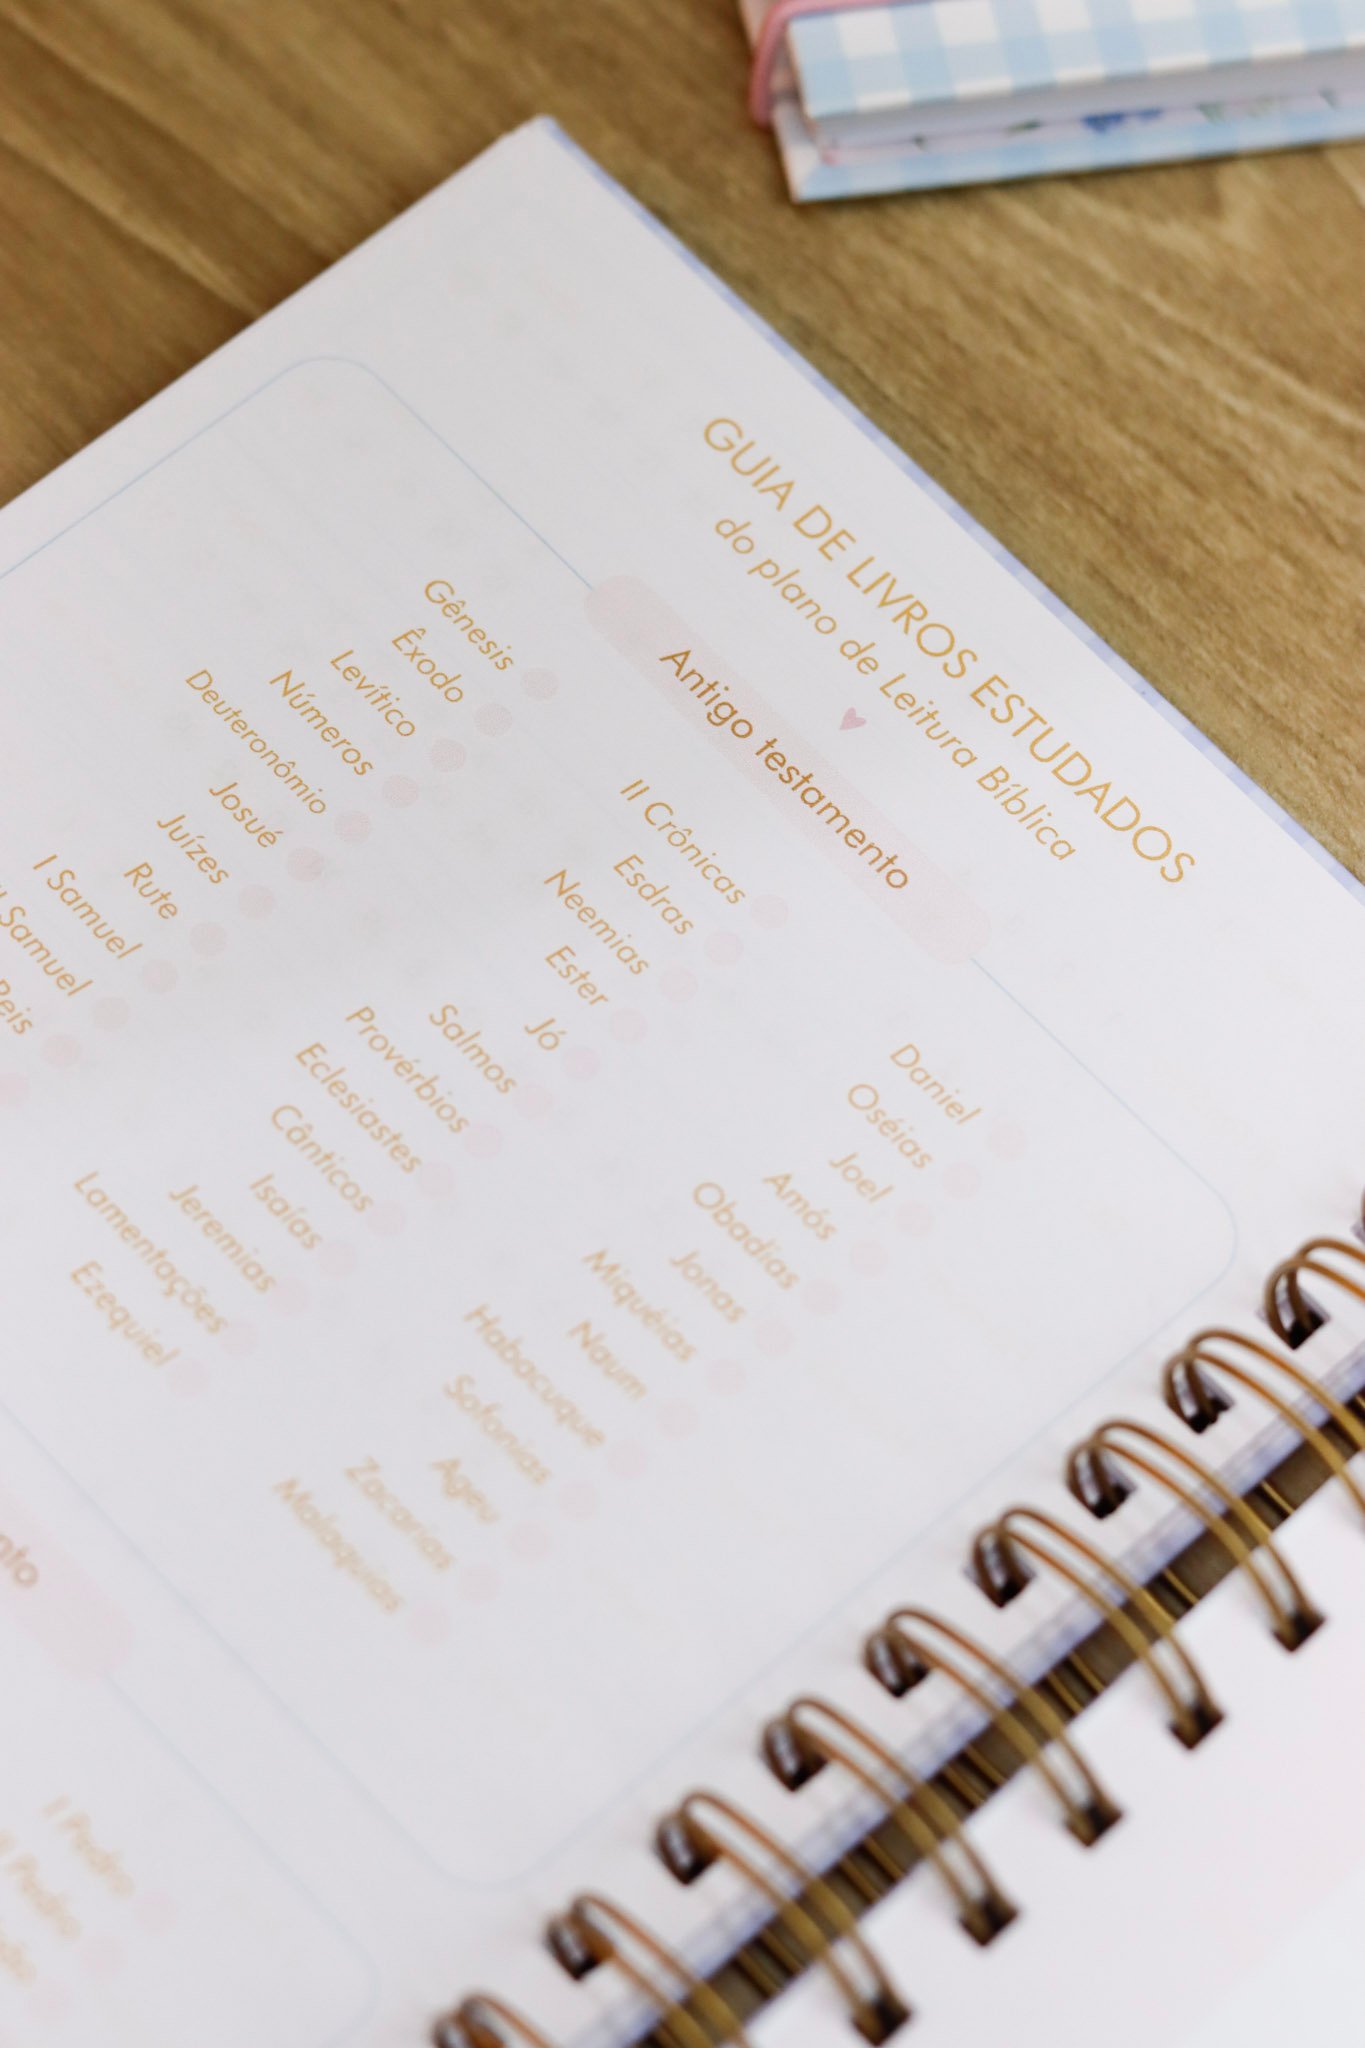 GUIA DE LIVROS ESTUDADOS
do plano de Leitura Bíblica
Antigo testamento
Gênesis
Êxodo
Levítico
Números
Deuteronômio
Josué
Juízes
Rute
I Samuel
Samuel
Reis
II Crônicas
Esdras
Neemias
Ester
Jó
Salmos
Provérbios
Eclesiastes
Cânticos
Isaías
Jeremias
Lamentações
Ezequiel
Daniel
Oséias
Joel
Amós
Obadias
Jonas
Miquéias
Naum
Habacuque
Sofonias
Ageu
Zacarias
Malaquias
nto
I Pedro
II Pedro